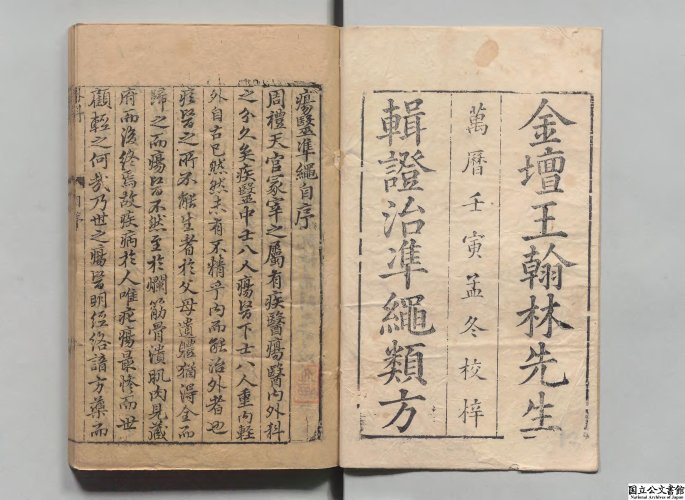 金壇王翰林先生
萬曆壬寅孟冬校梓
輯證治準繩類方
瘍醫準繩自序
周禮天官冢宰之屬有疾醫瘍醫內外科
之分久矣疾醫中士八人瘍醫下士八人重內輕
外自古已然然未有不精乎內而能治外者也
疾醫之所不能生者於父母遺體猶得全而
歸之而瘍醫不然至於爛筋骨潰肌肉見藏
府而後終焉故疾病於人唯疕瘍最慘而世
顧輕之何哉乃世之瘍醫明經絡諳方藥而
国立公文書館
National Archives of Japan